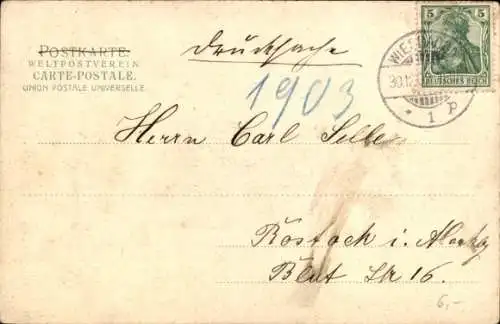 POSTKARTE.
WELTPOSTVEREIN
CARTE-POSTALE.
UNION POSTALE UNIVERSELLE.
Drucksache
5 5
DEUTSCHES REICH
30.12.
* 1 p
1903
Herrn Carl Selle
Rostock i. Meckg
Blut Str 16.
6,-